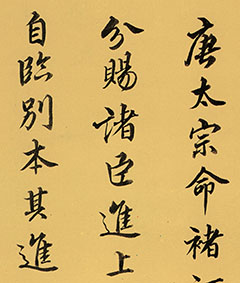 唐太宗命褚
分賜諸臣進上
自臨別本其進